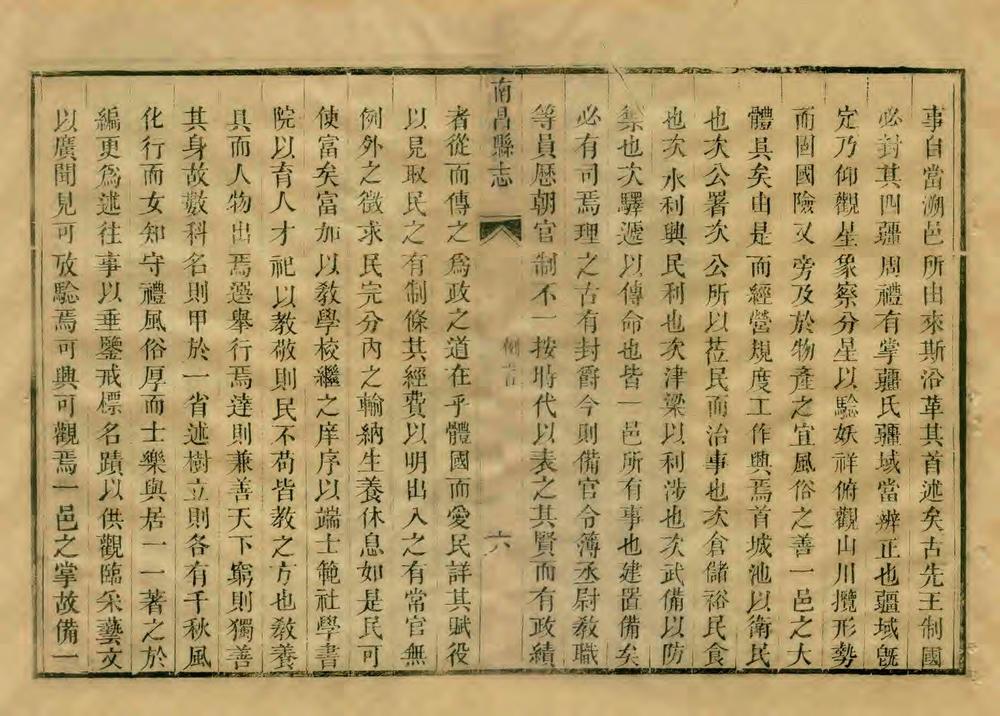 事自當溯邑所由來斯沿革其首述矣古先王制國
必封其四疆周禮有掌疆氏疆域當辨正也疆域旣
定乃仰觀星象察分星以驗妖祥俯觀山川攬形勢
而固國險又旁及於物產之宜風俗之善一邑之大
體具矣由是而經營規度工作興焉首城池以衛民
也次公署次公所以莅民而治事也次倉儲裕民食
也次水利興民利也次津梁以利涉也次武備以防
集也次驛遞以傳命也皆一邑所有事也建置備矣
必有司焉理之古有封爵今則備官令簿丞尉敎職
等員歷朝官制不一按時代以表之其賢而有政績
南昌縣志
例言
六
者從而傳之爲政之道在乎體國而愛民詳其賦役
以見取民之有制條其經費以明出入之有常官無
例外之徵求民完分內之輸納生養休息如是民可
使富矣富加以敎學校繼之庠序以端士範社學書
院以育人才祀以教敬則民不苟皆教之方也敎養
具而人物出焉選舉行焉達則兼善天下窮則獨善
其身故數科名則甲於一省述樹立則各有千秋風
化行而女知守禮風俗厚而士樂與居一一著之於
編更爲述往事以垂鑒戒標名蹟以供觀臨采藝文
以廣聞見可攷驗焉可興可觀焉一邑之掌故備一